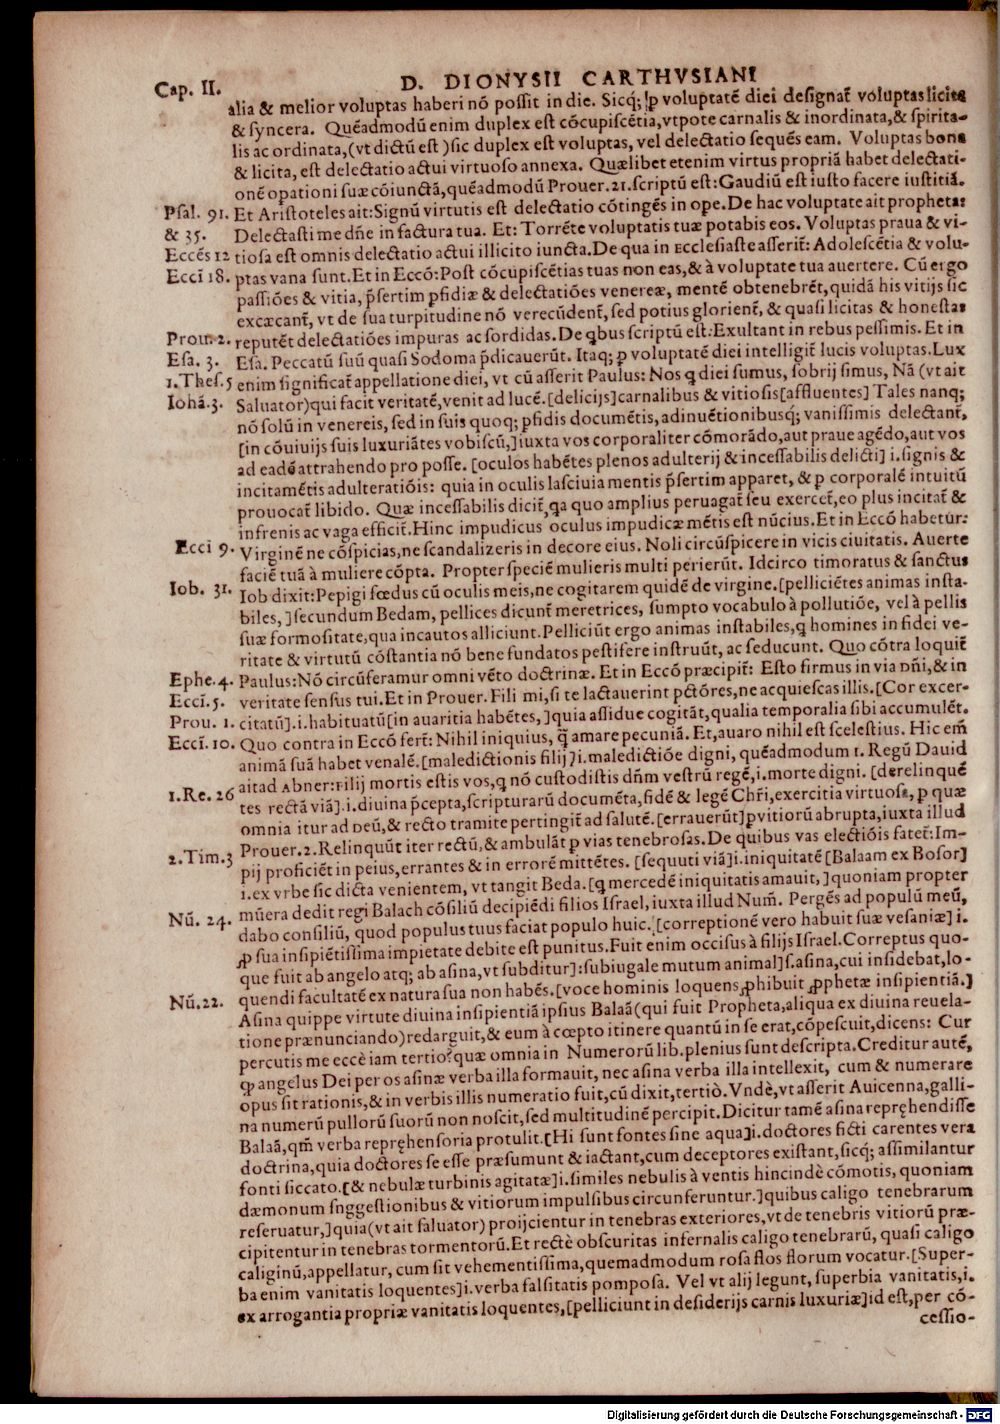 Cap. II.
D. DIONYSII CARTHVSIANI
alia & melior voluptas haberi nõ possit in die. Sicq́; ꝓ voluptatẽ diei designat᷑ voluptas licita
& syncera. Quẽadmodũ enim duplex est cõcupiscẽtia, vtpote carnalis & inordinata, & spirita-
lis ac ordinata, (vt dictũ est) sic duplex est voluptas, vel delectatio sequẽs eam. Voluptas bona
& licita, est delectatio actui virtuoso annexa. Quælibet etenim virtus propriã habet delectati-
onẽ opationi suæ cõiunctã, quẽadmodũ Prouer. 21. scriptũ est: Gaudiũ est iusto facere iustitiã.
Psal. 91. Et Aristoteles ait: Signũ virtutis est delectatio cõtingẽs in ope. De hac voluptate ait propheta:
& 35. Delectasti me dñe in factura tua. Et: Torrẽte voluptatis tuæ potabis eos. Voluptas praua & vi-
Eccẽs 12 tiosa est omnis delectatio actui illicito iuncta. De qua in Ecclesiaste asserit᷑: Adolescẽtia & volu-
Eccĩ 18. ptas vana sunt. Et in Eccõ: Post cõcupiscẽtias tuas non eas, & à voluptate tua auertere. Cũ ergo
passiões & vitia, p̃sertim pfidiæ & delectatiões venereæ, mentẽ obtenebrẽt, quidã his vitijs sic
excæcant᷑, vt de sua turpitudine nõ verecũdent᷑, sed potius glorient᷑, & quasi licitas & honestas
Prou. 2. reputẽt delectatiões impuras ac sordidas. De qbus scriptũ est: Exultant in rebus pessimis. Et in
Esa. 3. Esa. Peccatũ suũ quasi Sodoma p̃dicauerũt. Itaq; ꝑ voluptatẽ diei intelligit᷑ lucis voluptas. Lux
1. Thes. 5 enim significat᷑ appellatione diei, vt cũ asserit Paulus: Nos q̃ diei sumus, sobrij simus, Nã (vt ait
Iohã. 3. Saluator) qui facit veritatẽ, venit ad lucẽ. [delicijs] carnalibus & vitiosis [affluentes] Tales nanq;
nõ solũ in venereis, sed in suis quoq; pfidis documẽtis, adinuẽtionibusq́; vanissimis delectant᷑,
[in cõuiuijs suis luxuriãtes vobiscũ,] iuxta vos corporaliter cõmorãdo, aut praue agẽdo, aut vos
ad eadẽ attrahendo pro posse. [oculos habẽtes plenos adulterij & incessabilis delicti] i. signis &
incitamẽtis adulteratiõis: quia in oculis lasciuia mentis p̃sertim apparet, & ꝑ corporalẽ intuitũ
prouocat᷑ libido. Quæ incessabilis dicit᷑, qa quo amplius peruagat᷑ seu exercet᷑, eo plus incitat᷑ &
infrenis ac vaga efficit᷑. Hinc impudicus oculus impudicæ mẽtis est nũcius. Et in Eccõ habetur:
Ecci 9. Virginẽ ne cõspicias, ne scandalizeris in decore eius. Noli circũspicere in vicis ciuitatis. Auerte
faciẽ tuã à muliere cõpta. Propter speciẽ mulieris multi perierũt. Idcirco timoratus & sanctus
Iob. 31. Iob dixit: Pepigi fœdus cũ oculis meis, ne cogitarem quidẽ de virgine. [pelliciẽtes animas insta-
biles,] secundum Bedam, pellices dicunt᷑ meretrices, sumpto vocabulo à pollutiõe, vel à pellis
suæ formositate, qua incautos alliciunt. Pelliciũt ergo animas instabiles, q̃ homines in fidei ve-
ritate & virtutũ cõstantia nõ bene fundatos pestifere instruũt, ac seducunt. Quo cõtra loquit᷑
Ephe. 4. Paulus: Nõ circũferamur omni vẽto doctrinæ. Et in Eccõ præcipit᷑: Esto firmus in via Dñi, & in
Eccĩ. 5. veritate sensus tui. Et in Prouer. Fili mi, si te lactauerint pctõres, ne acquiescas illis. [Cor excer-
Prou. 1. citatũ]. i. habituatũ [in auaritia habẽtes,] quia assidue cogitãt, qualia temporalia sibi accumulẽt.
Eccĩ. 10. Quo contra in Eccõ fert᷑: Nihil iniquius, q̃ amare pecuniã. Et, auaro nihil est scelestius. Hic em̃
animã suã habet venalẽ. [maledictionis filij] i. maledictiõe digni, quẽadmodum 1. Regũ Dauid
1. Re. 26 ait ad Abner: Filij mortis estis vos, q̃ nõ custodistis dñm vestrũ regẽ, i. morte digni. [derelinquẽ
tes rectã viã]. i. diuina p̃cepta, scripturarũ documẽta, fidẽ & legẽ Chr̃i, exercitia virtuosa, ꝑ quæ
omnia itur ad Deũ, & recto tramite pertingit᷑ ad salutẽ. [errauerũt] ꝑ vitiorũ abrupta, iuxta illud
Prouer. 2. Relinquũt iter rectũ, & ambulãt ꝑ vias tenebrosas. De quibus vas electiõis fatet᷑: Im-
2. Tim. 3 pij proficiẽt in peius, errantes & in errorẽ mittẽtes. [sequuti viã] i. iniquitatẽ [Balaam ex Bosor]
i. ex vrbe sic dicta venientem, vt tangit Beda. [q̃ mercedẽ iniquitatis amauit,] quoniam propter
mũera dedit regi Balach cõsiliũ decipiẽdi filios Israel, iuxta illud Num̃. Pergẽs ad populũ meũ,
Nũ. 24. dabo consiliũ, quod populus tuus faciat populo huic. [correptionẽ vero habuit suæ vesaniæ] i.
ꝓ sua insipiẽtissima impietate debite est punitus. Fuit enim occisus à filijs Israel. Correptus quo-
que fuit ab angelo atq; ab asina, vt subditur]: subiugale mutum animal] s. asina, cui insidebat, lo-
Nũ. 22. quendi facultatẽ ex natura sua non habẽs. [voce hominis loquens, ꝓhibuit ꝓphetæ insipientiã.]
Asina quippe virtute diuina insipientiã ipsius Balaã (qui fuit Propheta, aliqua ex diuina reuela-
tione prænunciando) redarguit, & eum à cœpto itinere quantũ in se erat, cõpescuit, dicens: Cur
percutis me eccè iam tertio? quæ omnia in Numerorũ lib. plenius sunt descripta. Creditur autẽ,
ꝙ angelus Dei per os asinæ verba illa formauit, nec asina verba illa intellexit, cum & numerare
opus sit rationis, & in verbis illis numeratio fuit, cũ dixit, tertiò. Vndè, vt asserit Auicenna, galli-
na numerũ pullorũ suorũ non noscit, sed multitudinẽ percipit. Dicitur tamẽ asina repręhendisse
Balaã, qm̃ verba repręhensoria protulit. [Hi sunt fontes sine aqua] i. doctores ficti carentes vera
doctrina, quia doctores se esse præsumunt & iactant, cum deceptores existant, sicq́; assimilantur
fonti siccato. [& nebulæ turbinis agitatæ] i. similes nebulis à ventis hincindè cõmotis, quoniam
dæmonum snggestionibus & vitiorum impulsibus circunferuntur.] quibus caligo tenebrarum
reseruatur,] quia (vt ait saluator) proijcientur in tenebras exteriores, vt de tenebris vitiorũ præ-
cipitentur in tenebras tormentorũ. Et rectè obscuritas infernalis caligo tenebrarũ, quasi caligo
caliginũ, appellatur, cum sit vehementissima, quemadmodum rosa flos florum vocatur. [Super-
ba enim vanitatis loquentes] i. verba falsitatis pomposa. Vel vt alij legunt, superbia vanitatis, i.
ex arrogantia propriæ vanitatis loquentes, [pelliciunt in desiderijs carnis luxuriæ] id est, per cõ-
cessio-
Digitalisierung gefördert durch die Deutsche Forschungsgemeinschaft - DFG